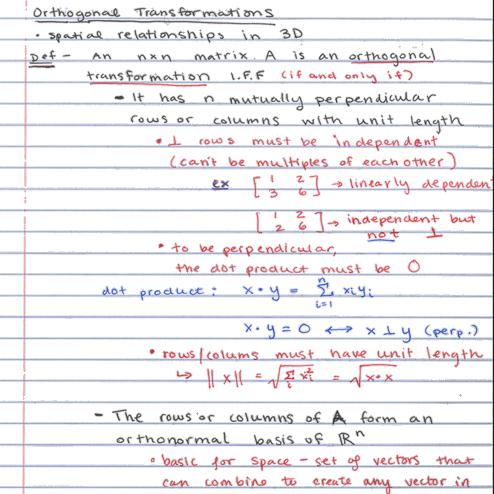 Orthogonal Transformations
• spatial relationships in 3D
Def - An n×n matrix A is an orthogonal
transformation I.F.F (if and only if)
- It has n mutually perpendicular
rows or columns with unit length
• ⊥ rows must be independent
(can't be multiples of each other)
ex [1 2; 3 6] → linearly dependent
[1 2; 2 6] → independent but
not ⊥
• to be perpendicular,
the dot product must be 0
dot product: x • y = Σ_{i=1}^{n} x_i y_i
x • y = 0 ↔ x ⊥ y (perp.)
• rows/colums must have unit length
↳ ||x|| = √(Σ_i x_i²) = √(x•x)
- The rows or columns of A form an
orthonormal basis of ℝⁿ
• basic for space - set of vectors that
can combine to create any vector in